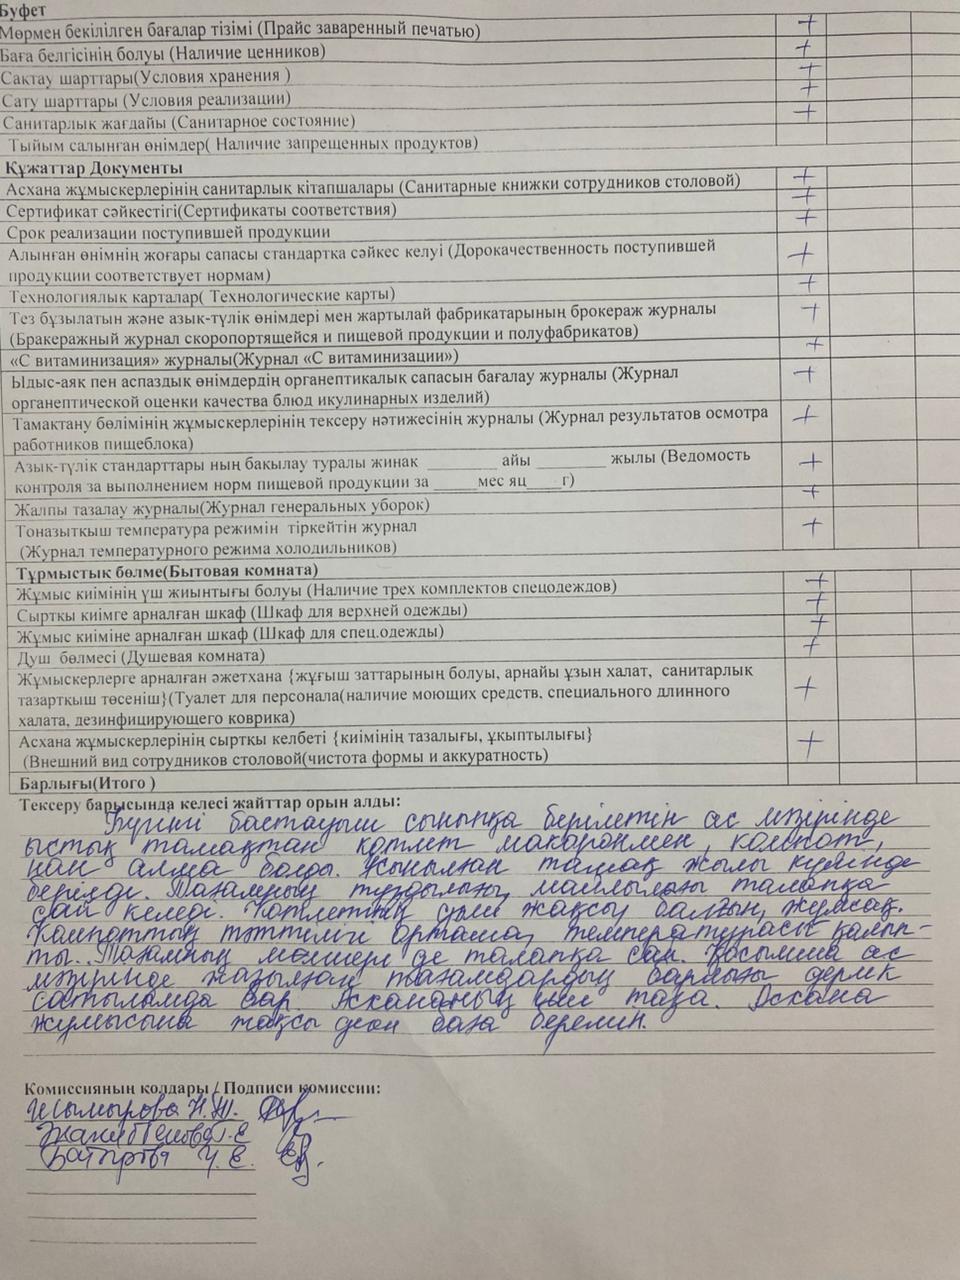 Буфет
Мөрмен бекілілген бағалар тізімі (Прайс заваренный печатью) +
Баға белгісінің болуы (Наличие ценников) +
Сақтау шарттары(Условия хранения ) +
Сату шарттары (Условия реализации) +
Санитарлык жағдайы (Санитарное состояние) +
Тыйым салынған өнімдер( Наличие запрещенных продуктов)
Құжаттар Документы
Асхана жұмыскерлерінің санитарлық кітапшалары (Санитарные книжки сотрудников столовой) +
Сертификат сәйкестігі(Сертификаты соответствия) +
Срок реализации поступившей продукции +
Алынған өнімнің жоғары сапасы стандартка сәйкес келуі (Дорокачественность поступившей
продукции соответствует нормам) +
Технологиялык карталар( Технологические карты) +
Тез бұзылатын және азык-түлік өнімдері мен жартылай фабрикатарының брокераж журналы
(Бракеражный журнал скоропортящейся и пищевой продукции и полуфабрикатов) +
«С витаминизация» журналы(Журнал «С витаминизации») +
Ыдыс-аяк пен аспаздык өнімдердің органептикалык сапасын бағалау журналы (Журнал
органептической оценки качества блюд икулинарных изделий) +
Тамактану бөлімінің жұмыскерлерінің тексеру нәтижесінің журналы (Журнал результатов осмотра
работников пищеблока) +
Азык-түлік стандарттары ның бакылау туралы жинак ________ айы ________ жылы (Ведомость
контроля за выполнением норм пищевой продукции за _____мес яц____г) +
Жалпы тазалау журналы(Журнал генеральных уборок) +
Тоназыткыш температура режимін тіркейтін журнал
(Журнал температурного режима холодильников) +
Тұрмыстык бөлме(Бытовая комната)
Жұмыс киімінің үш жиынтығы болуы (Наличие трех комплектов спецодеждов) +
Сырткы киімге арналған шкаф (Шкаф для верхней одежды) +
Жұмыс киіміне арналған шкаф (Шкаф для спец.одежды) +
Душ бөлмесі (Душевая комната) +
Жұмыскерлерге арналған әжетхана {жұғыш заттарының болуы, арнайы ұзын халат, санитарлык
тазарткыш төсеніш}(Туалет для персонала(наличие моющих средств, специального длинного
халата, дезинфицирующего коврика) +
Асхана жұмыскерлерінің сырткы келбеті {киімінің тазалығы, ұкыптылығы}
(Внешний вид сотрудников столовой(чистота формы и аккуратность) +
Барлығы(Итого )
Тексеру барысында келесі жайттар орын алды:
Бүгінгі бастауыш сыныпқа берілетін ас мәзірінде
ыстық тамақтан котлет макаронмен, компот,
нан алма болды. Ұсынылған тамақ жылы күйінде
берілді. Тағамның тұздылығы, майлылығы талапқа
сай келеді. Котлеттің дәмі жақсы балғын, жұмсақ.
Компоттың тәттілігі орташа, температурасы қалып-
ты. Тағамның мөлшері де талапқа сай. Қосымша ас
мәзірінде жазылған тағамдардың барлығы дерлік
сатылымда бар. Асхананың іші таза. Асхана
жұмысына жақсы деген баға беремін.
Комиссияның колдары / Подписи комиссии:
Н.Ж.
Г.Е
Батырова Ч. Е.